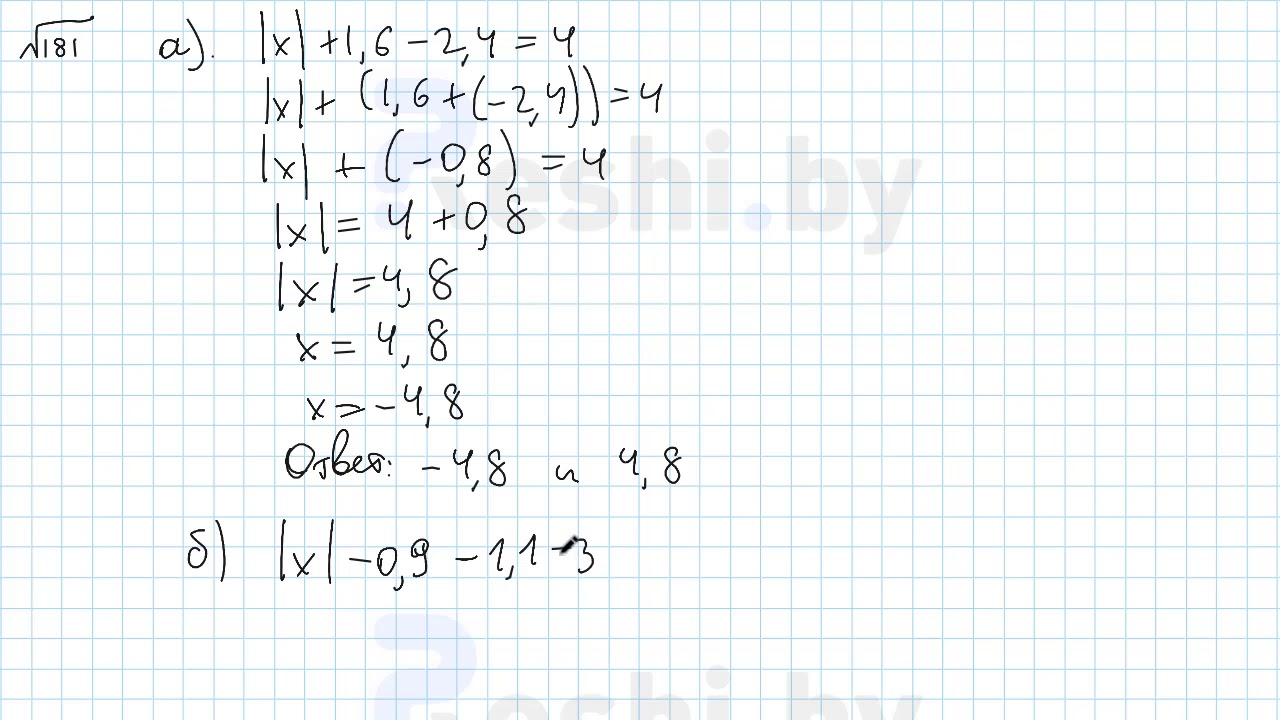 √181 а). |x| + 1,6 - 2,4 = 4
|x| + (1,6 + (-2,4)) = 4
|x| + (-0,8) = 4
|x| = 4 + 0,8
|x| = 4,8
x = 4,8
x = -4,8
Ответ: -4,8 и 4,8
б) |x| - 0,9 - 1,1 - 3
?eshi.by
?eshi.by